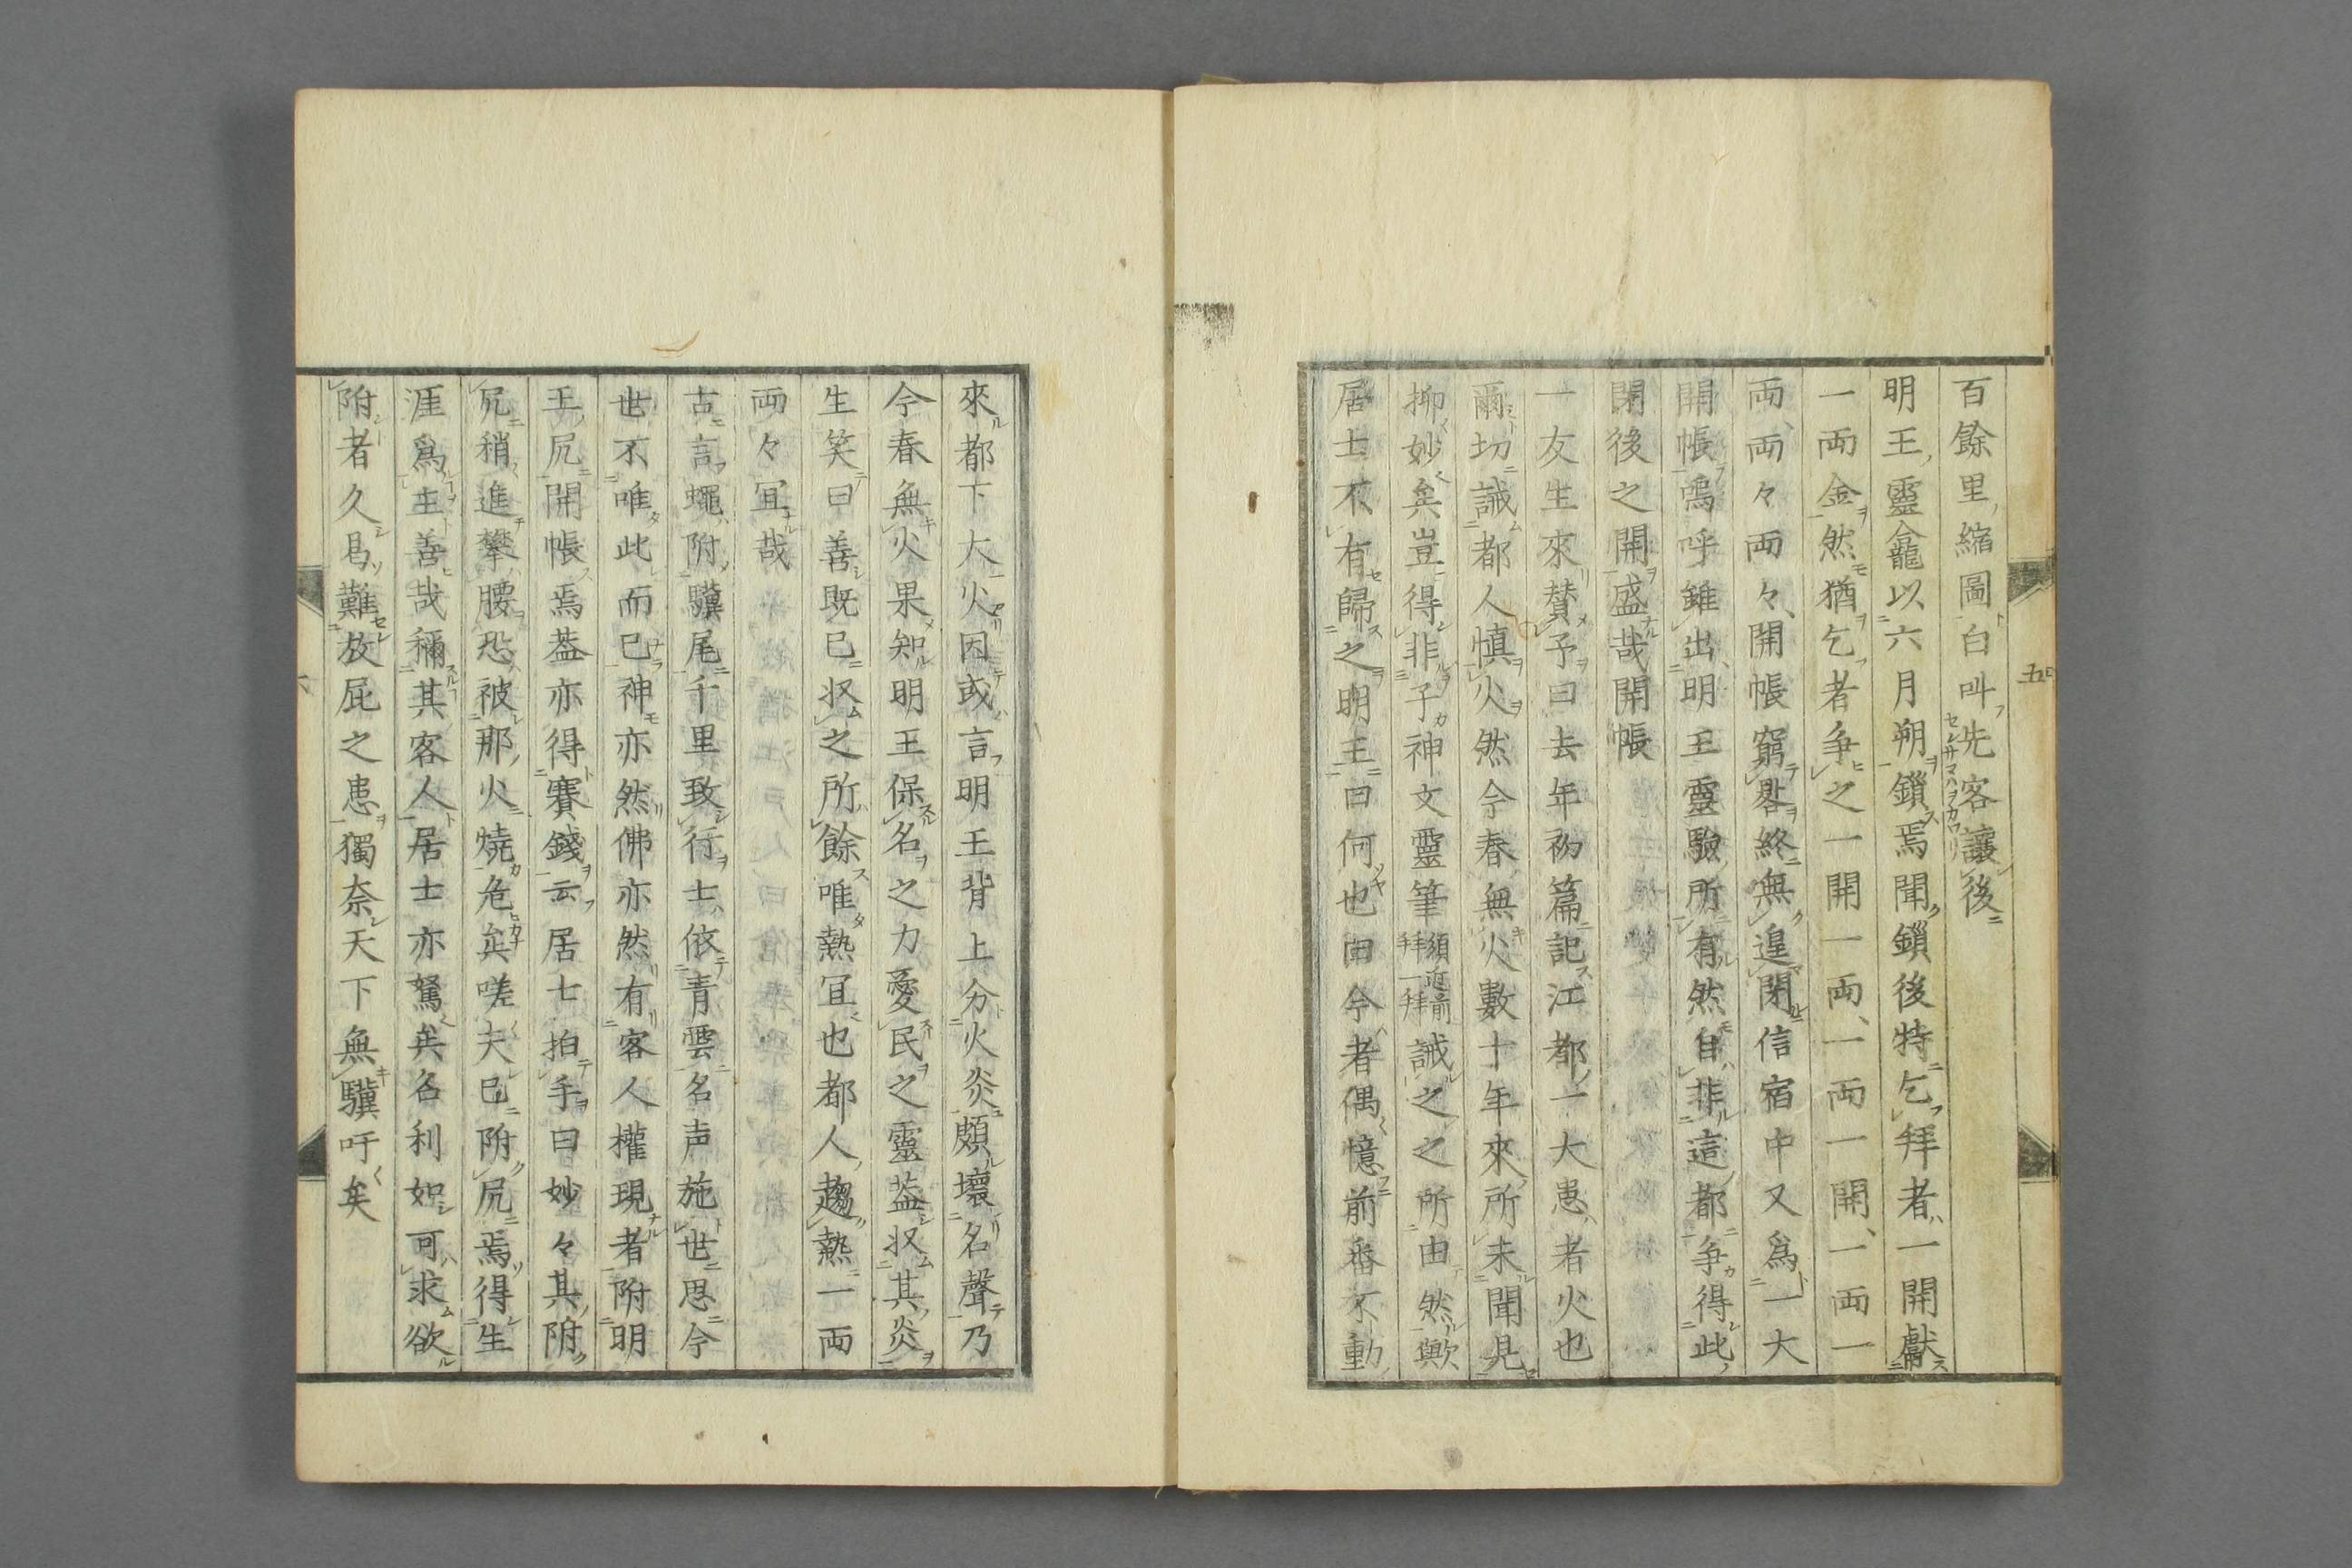 百餘里縮圖白叫先客讓後
明王靈龕以六月朔鎖焉聞鎖後特乞拜者一開獻
一両金然猶乞者争之一開一両、一両一開、一両一
両、両々両々、開帳窮晷終無遑閉信宿中又爲一大
開帳嗚呼錐出明王靈驗所有然自非這都争得此
閉後之開盛哉開帳
一友生來賛予曰去年初篇記江都一大患者火也
爾切誡都人慎火然今春無火數十年來所未聞見
抑妙矣豈得非子神文靈筆須進前拜一拜誡之之所由然歟
居士不有歸之明王曰何也曰今者偶憶前番不動
來都下大火因或言明王背上分火炎頗壞名聲乃
今春無火果知明王保名之力愛民之靈葢収其炎
生笑曰善既已収之所餘唯熱冝也都人趨熱一両
両々冝哉
古言蠅附驥尾千里致行士依青雲名声施世思今
世不唯此而已神亦然佛亦然有客人權現者附明
王尻開帳焉葢亦得賽錢云居士拍手曰妙々其附
尻稍進攀腰恐被那火燒危矣嗟夫已附尻焉得生
涯爲主善哉稱其客人居士亦駑矣名利如可求欲
附者久曷難放屁之患獨奈天下無驥吁矣
五
六